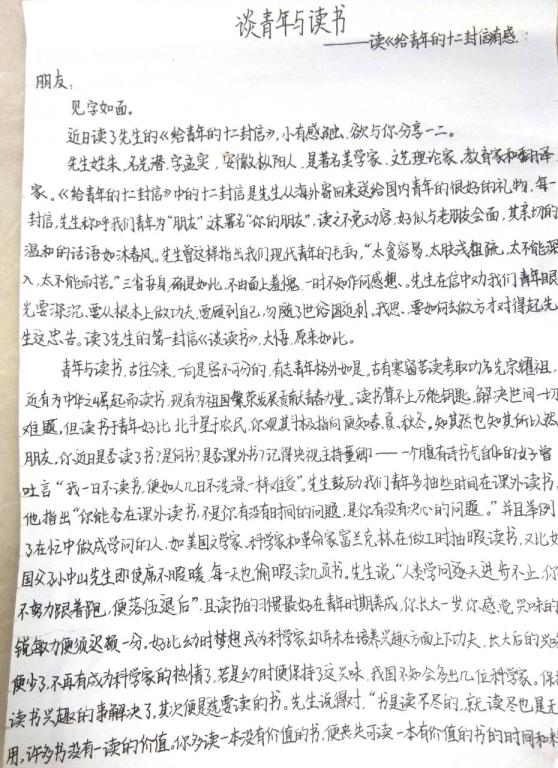 谈青年与读书
——读《给青年的十二封信》有感
朋友:
见字如面。
近日读了先生的《给青年的十二封信》,小有感触,欲与你分享一二。
先生姓朱,名光潜,字孟实,安徽枞阳人,是著名美学家、文艺理论家、教育家和翻译
家。《给青年的十二封信》中的十二封信是先生从海外寄回来送给国内青年的很好的礼物,每一
封信,先生称呼我们青年为“朋友”,末署名“你的朋友”,读之不免动容,好似与老朋友会面,其亲切的
温和的话语如沐春风。先生曾这样指出我们现代青年的毛病,“太贪容易,太肤浅粗疏,太不能深
入,太不能耐苦。”三省吾身,确是如此,不由面上羞愧,一时不知作何感想。先生在信中劝我们青年眼
光要深沉,要从根本上做功夫,要顾到自己,勿随了世俗图近利。我思,要如何去做方才对得起先
生这忠告。读了先生的第一封信《谈读书》,大悟,原来如此。
青年与读书,古往今来,一向是密不可分的,有志青年格外如是,古有寒窗苦读考取功名光宗耀祖,
近有为中华之崛起而读书,现有为祖国繁荣发展贡献青春力量。读书算不上万能钥匙,解决世间一切
难题,但读书于青年好比北斗星于农民,你观其斗柄指向便知春、夏、秋、冬。知其然也知其所以然
朋友,你近日是否读了书?是何书?是否课外书?记得央视主持董卿——一个腹有诗书气自华的女子曾
吐言“我一日不读书,便如人几日不洗澡一样难受”。先生鼓励我们青年多抽些时间在课外读书,
他指出“你能否在课外读书,不是你有没有时间的问题,是你有没有决心的问题。”并且举例
了在忙中做成学问的人,如美国文学家、科学家和革命家富兰克林在做工时抽暇读书,又比如
国父孙中山先生即使席不暇暖,每一天也偷暇读几页书。先生说“人类学问逐天进步不止,你
不努力跟着跑,便落伍退后”,且读书的习惯最好在青年时期养成,你长大一岁,你感觉兴味的
锐敏力便须迟顿一分。好比幼时梦想成为科学家却并未在培养兴趣方面上下功夫,长大后的兴味
便少了,不再有成为科学家的热情了,若是幼时便保持了这兴味,我国不知会多出几位科学家。保持
读书兴趣的事解决了,其次便是选要读的书。先生说得对,“书是读不尽的,就读尽也是无
用,许多书没有一读的价值。你多读一本没有价值的书,便丧失可读一本有价值的书的时间和精